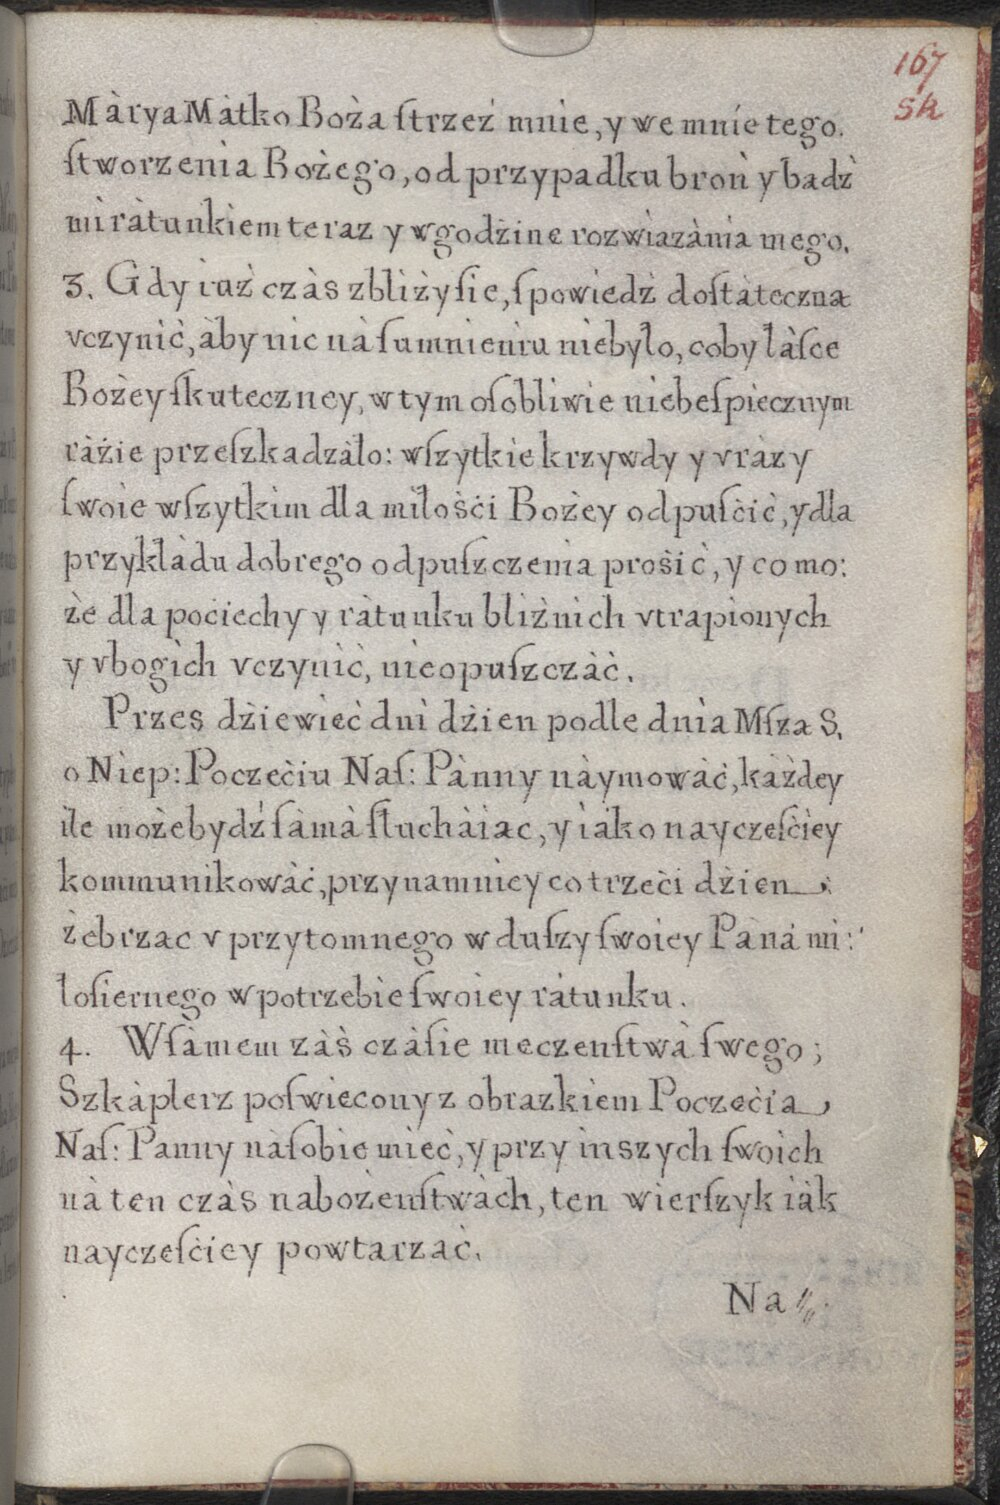 167
sk
Màrya Màtko Boża ſtrzeż mnie, y we mnie tego.
ſtworzenia Bożego, od przypadku broń y badź
mi ràtunkiem teraz y w godżine rozwiazània mego.
3. Gdy iuż czàs zbliży ſie, ſpowiedź doſtàteczna
vczynić, àby nic nà ſumnieniu niebyło, coby łàſce
Bożey ſkuteczney, w tym oſobliwie niebeſpiecznym
ràżie przeſzkadzàło: wſzytkie krzywdy y vràzy
ſwoie wſzytkim dla miłośći Bożey odpuśćić, y dla
przykłàdu dobrego odpuſzczenia prośić, y co mo:
że dla poćiechy y ràtunku bliźnich vtrapionych
y vbogich vczynić, nieopuſzczàć.
Przes dżiewieć dni dżien podle dnia Mſza S.
o Niep: Poczećiu Naſ: Pànny nàymowàć, każdey
ile może bydź ſàmà ſłuchàiac, y iàko nayczeſćiey
kommunikowàć, przynamniey co trzeći dżien
żebrzac v przytomnego w duſzy ſwoiey Panà mi:
łoſiernego w potrzebie ſwoiey ràtunku.
4. W ſàmem zàś czàſie meczenſtwà ſwego;
Szkàplerz poſwiecony z obrazkiem Poczećia
Naſ: Panny nà ſobie mieć, y przy inszych ſwoich
nà ten czàs nabożenſtwàch, ten wierſzyk iàk
nayczeſćiey powtarzać.
Na